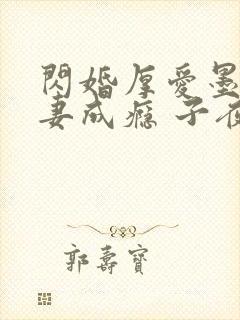 閃婚厚愛墨
妻成瘾 子夜
郭壽寶